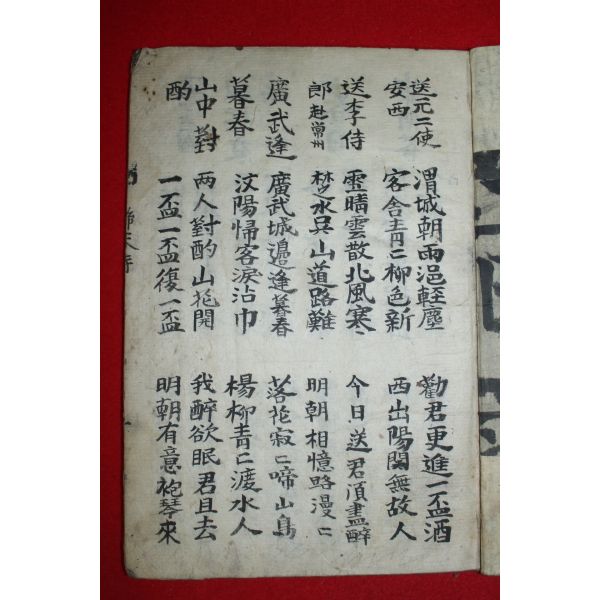 送元二使 渭城朝雨浥輕塵 勸君更進一盃酒
安西 客舍靑〻柳色新 西出陽関無故人
送李侍 雪晴雲散北風寒 今日送君須盡醉
郎赴常州 楚水吳山道路難 明朝相憶路漫〻
廣武逢 廣武城邉逢暮春 落花寂〻啼山鳥
暮春 汶陽帰客淚沾巾 楊柳青〻渡水人
山中對 两人對酌山花開 我醉欲眠君且去
酌 一盃一盃復一盃 明朝有意袍琴來